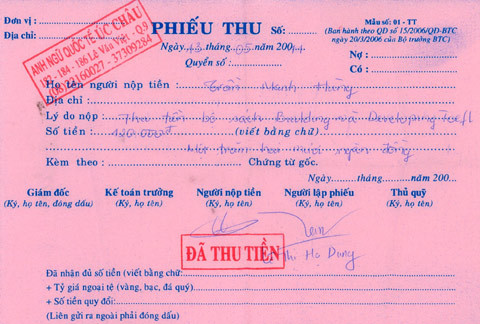 Đơn vị :
Địa chỉ :
ANH NGỮ QUỐC TẾ ÚC CHÂU
182 - 184 - 186 Lê Văn Việt - Q9
(08) 22160027 - 37309284
PHIẾU THU Số:
Ngày 13 tháng 05 năm 200
Quyển số :
Mẫu số: 01 - TT
(Ban hành theo QĐ số 15/2006/QĐ-BTC
ngày 20/3/2006 của Bộ trưởng BTC)
Nợ :
Có :
Họ tên người nộp tiền : Trần Mạnh Hùng
Địa chỉ :
Lý do nộp : Thu tiền bộ sách Building và Developing Toefl
Số tiền : 120.000đ (viết bằng chữ) :
Một trăm hai mươi ngàn đồng
Kèm theo : Chứng từ gốc.
Ngày tháng năm 200
Giám đốc Kế toán trưởng Người nộp tiền Người lập phiếu Thủ quỹ
(Ký, họ tên, đóng dấu) (Ký, họ tên) (Ký, họ tên) (Ký, họ tên) (Ký, họ tên)
ĐÃ THU TIỀN
Thị Hạ Dung
Đã nhận đủ số tiền (viết bằng chữ:
+ Tỷ giá ngoại tệ (vàng, bạc, đá quý)
+ Số tiền quy đổi:
(Liên gửi ra ngoài phải đóng dấu)